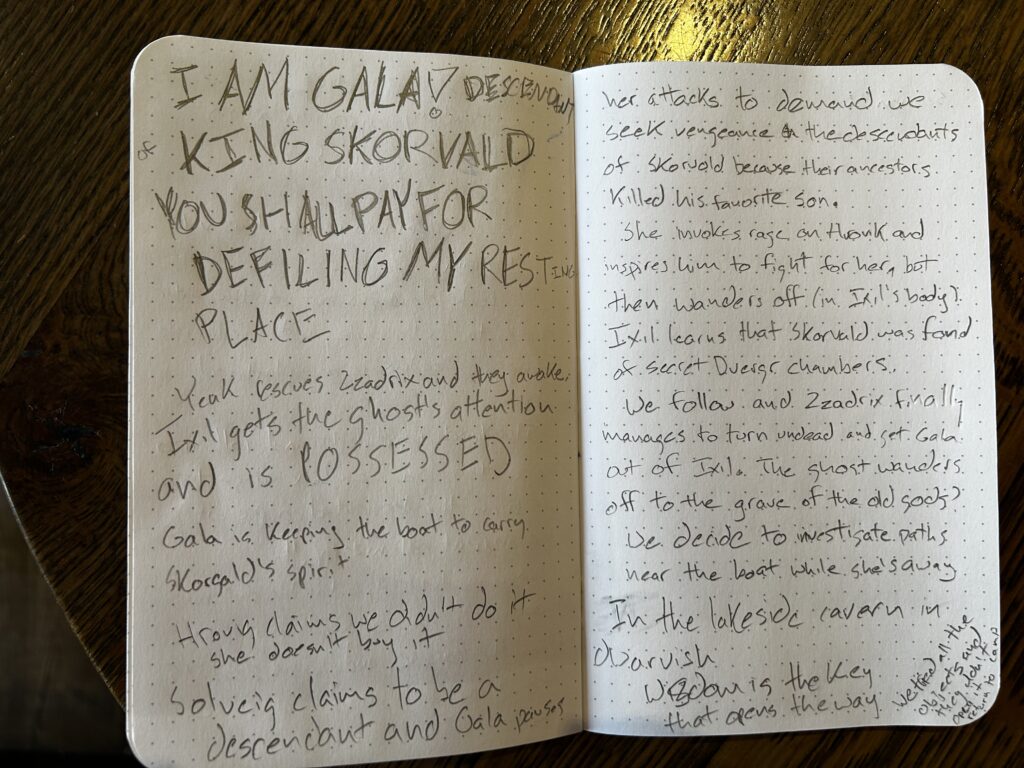 I AM GALA! DESCENDENT
of KING SKORVALD
YOU SHALL PAY FOR
DEFILING MY RESTING
PLACE
Yeak rescues Zzadrix and they awake.
Ixil gets the ghost's attention
and is POSSESSED
Gala is keeping the boat to carry
Skorgald's spirit
claims we didn't do it
she doesn't buy it
Solveig claims to be a
descendant and Gala pauses
her attacks to demand we
seek vengeance on the descendants
of Skorvald because their ancestors
killed his favorite son.
She invokes rage on and
inspires him to fight for her, but
then wanders off (in Ixil's body).
Ixil learns that Skorvald was fond
of secret Duergr chambers.
We follow and Zzadrix finally
manages to turn undead and get Gala
out of Ixil. The ghost wanders
off to the grave of the old gods?
We decide to investigate paths
near the boat while she's away
In the lakeside cavern in
Wisdom is the key
that opens the way
all the
objects and
they
return to camp